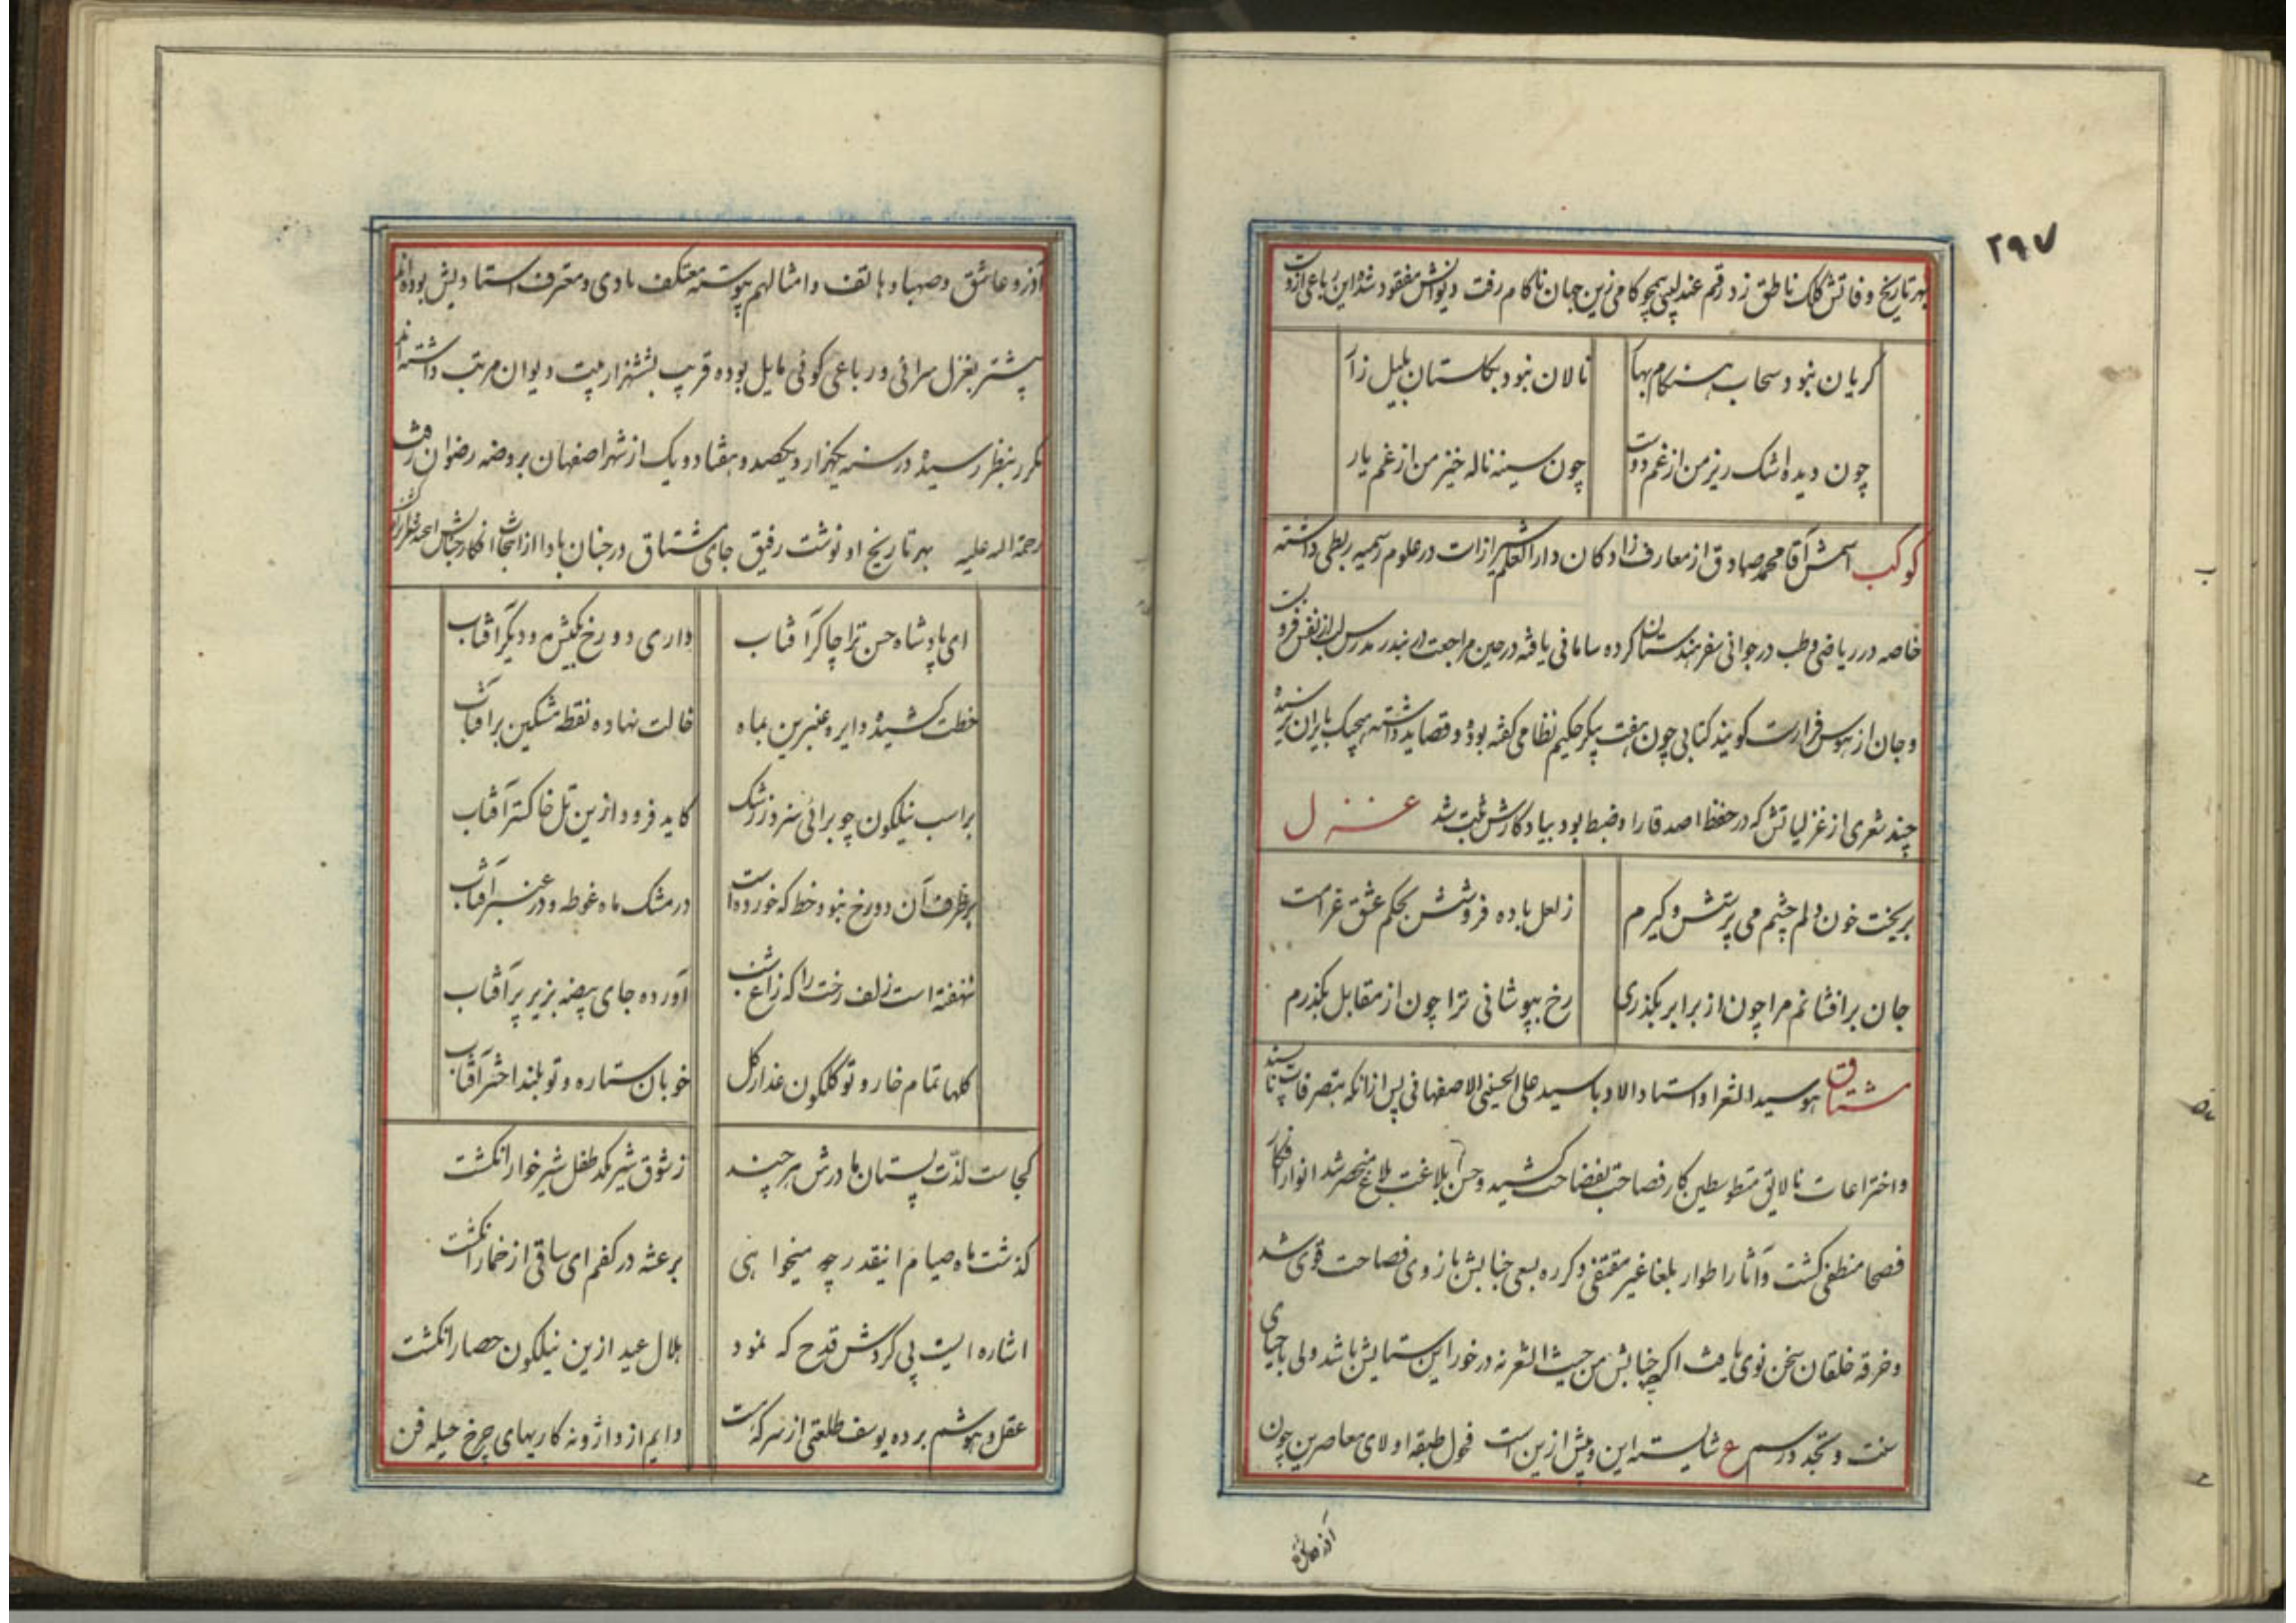 ۲۹۷
بهر تاریخ وفاتش کلک ناطق زد رقم عندلیبی همچو کامی زین جهان ناکام رفت دیوانش مفقود شده این رباعی ازوست
کریان نبود سحاب هنکام بهار نالان نبود بکلستان بلبل زار
چون دیده اشک ریز من از غم دوست چون سینه ناله خیز من از غم یار
کوکب اسمش آقا محمد صادق از معارف زادکان دار العلم شیراز است در علوم رسمیه ربطی داشته
خاصه در ریاضی و طب در جوانی سفر هندستان کرده سامانی یافته در حین مراجعت در بندر مدرس لب از نفس فروبست
و جان از هوس فرارست کویند کتابی چون هفت پیکر حکیم نظامی کفته بوده و قصاید داشته هیچیک بایران نرسیده
چند شعری از غزلیاتش که در حفظ اصدقا را و ضبط بود بیادکارش ثبت شد غزل
بریخت خون دلم چشم می پرستش و کیرم زلعل باده فروشش بحکم عشق غرامت
جان برافشانم مرا چون از برابر بکذری رخ بپوشانی ترا چون از مقابل بکذرم
مشتاق هو سید الشعرا و استاد الادبا سید علی الحسینی الاصفهانی پس از آنکه بتصرفات ناپسند
و اختراعات نالایق متوسطین کار فصاحت بفضاحت کشید و حسن بلاغت بلاغ منحصر شد انوار افکار
فصحا منطفی کشت و آثار اطوار بلغا غیر مقتفی دکرره بسعی جنابش بازوی فصاحت قوی شد
و خرقه خلقان سخن نوی یافت اکرچه جنابش من حیث الشعر نه در خور این ستایش باشد ولی باحیای
سنت و تجدد رسم ع شایسته این و بیش ازین است فحول طبقه اولای معاصرین چون
آذر و عاشق
آذر و عاشق و صهبا و هاتف و امثالهم پیوسته معتکف نادی و معترف استادیش بوده اند
بیشتر بغزل سرائی و رباعی کوئی مایل بوده قریب بششهزار بیت دیوان مرتب داشته اند
مکرر بنظر رسیده در سنه یکهزار و یکصد و هفتاد و یک از شهر اصفهان بروضه رضوان رفت
رحمة الله علیه بهر تاریخ او نوشت رفیق جای مشتاق در جنان بادا از ابیات افکار جنابش
ای پادشاه حسن ترا چاکر آفتاب داری دو رخ یکیش مه و دیکر آفتاب
خطت کشیده دایره عنبرین بماه خالت نهاده نقطه مشکین بر آفتاب
بر اسب نیلکون چو برائی سزد ز رشک کاید فرود ازین تل خاکستر آفتاب
بر طرف آن دو رخ نبود خط که خورده است در مشک ماه غوطه و در عنبر آفتاب
نهفته است زلف رخت را که زاغ شب آورده جای بیضه بزیر پر آفتاب
کلها تمام خار و تو کلکون عذار کل خوبان ستاره و تو بلند اختر آفتاب
کجاست لذت پستان مادرش هر چند ز شوق شیر مکد طفل شیرخوار انکشت
کذشت ماه صیام اینقدر چه میخواهی برعشه در کفم ای ساقی از خمار انکشت
اشاره ایست پی کردش قدح که نمود هلال عید ازین نیلکون حصار انکشت
عقل و هوشم برده یوسف طلعتی از سر که هست دایم از واژونه کاریهای چرخ حیله فن